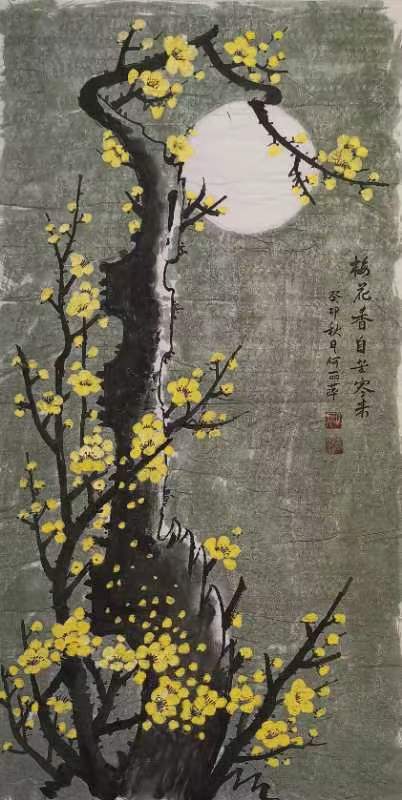 梅花香自苦寒来
癸卯秋月何丽萍